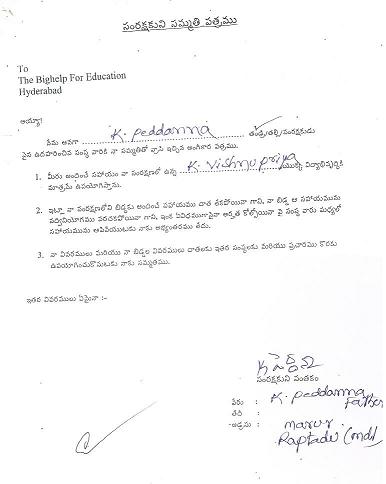 సంరక్షకుని సమ్మతి పత్రము
To
The Bighelp For Education
Hyderabad
అయ్యా!
నేను అనగా K. Peddanna తండ్రి/తల్లి/సంరక్షకుడు
పైన ఉదహరించిన సంస్థ వారికి నా సమ్మతితో వ్రాసి ఇచ్చిన అంగీకార పత్రము.
1. మీరు అందించే సహాయము నా సంరక్షణలో ఉన్న K. Vishnu priya యొక్క విద్యాభివృద్ధికి
మాత్రమే ఉపయోగిస్తాను.
2. ఇట్లా నా సంరక్షణలోని బిడ్డకు అందించే సహాయము దాత లేకపోయినా గాని, నా బిడ్డ ఆ సహాయమును
సద్వినియోగము పరచకపోయినా గాని, ఇంక ఏవిధముగానైనా అర్హత కోల్పోయినా పై సంస్థ వారు మధ్యలో
సహాయమును ఆపివేయుటకు నాకు అభ్యంతరము లేదు.
3. నా వివరములు మరియు నా బిడ్డల వివరములు దాతలకు ఇతర సంస్థలకు మరియు ప్రచారము కొరకు
ఉపయోగించుకొనుటకు నాకు సమ్మతము.
ఇతర వివరములు ఏమైనా :-
K పెద్దన్న
సంరక్షకుని సంతకం
పేరు : K. Peddanna
Father
తేది :
అడ్రసు : marur
Raptadu (mdl)